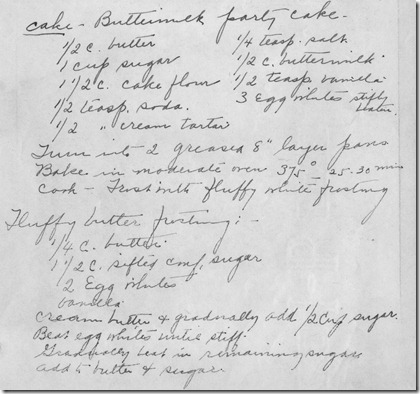 cake - Buttermilk party cake -
1/2 c. butter
1 cup sugar
1 1/2 c. cake flour
1/2 teasp. soda.
1/2 " cream tartar
1/4 teasp. salt
1/2 c. buttermilk
1/2 teasp vanilla
3 Egg whites stifly
beaten.
Turn into 2 greased 8" layer pans
Bake in moderate oven 375° 25-30 mins
Cook - Frost with fluffy white frosting
Fluffy butter frosting: -
1/4 c. butter
1 1/2 c. sifted conf. sugar
2 Egg whites
vanilla
Cream butter & gradually add 1/2 cup sugar.
Beat egg whites until stiff.
Gradually beat in remaining sugar.
add to butter & sugar.